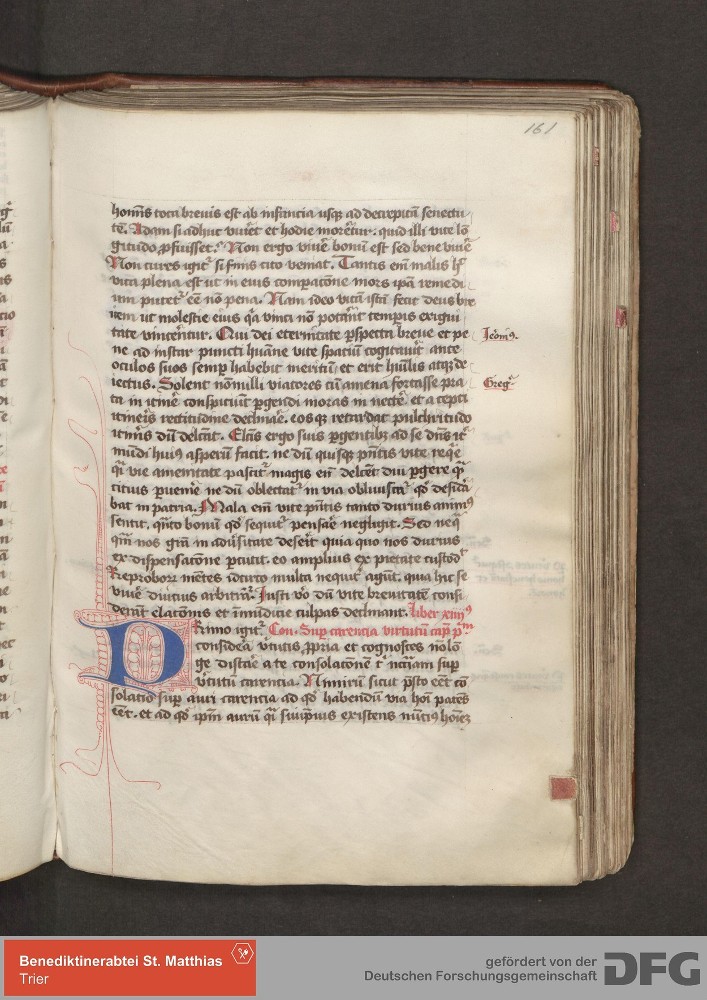 161
hoīs tota breuis est ab infancia usq; ad decrepitā senectu
tē. Adam si adhuc viuet et hodie moret̄. quid illi vite lō
gitudo p̄fuisset. Non ergo viuē bonū est sed bene viuē
Non cures igit̄ si finis cito veniat. Tantis em̄ malis h̄
vita plena est ut in eius cōpatōne mors ip̄a remedi
um putet̄ eē nō pena. Nam ideo vitā istā fecit deus bre
uem ut molestie eius q̄a vinci nō potāt tempis exigui
tate vincētur. Qui dei eternitate p̄specta breue et pe
Jeōnim9.
ne ad instar puncti huāne vite spatiū cogitauit ante
oculos suos semp habebit meritū et erit hūilis atq; de
iectus. Solent nōnulli viatores cū amena fortasse pra
Greg̃
ta in itinē conspiciūt p̄gendi moras in nectē. et a cepti
itineris rectitudine declinaē. eos q; retardat pulchritudo
itineris dū delectat. Electis ergo suis p̄gentibz ad se dn̄s it̄
mūdi huius asperū facit. ne dū quisq; p̄ntis vite reqē
q̄i vie amenitate pascit̄ magis eū delectet diu p̄gere q̄
citius p̄uenīe ne dū oblectat̄ in via obliuiscat̄ q̄d desidē
bat in patria. Mala em̄ vite p̄ntis tanto durius anim9
sentit. q̄nto bonū q̄d sequit̄ pensaē negligit. Seo neq̄
q̄m nos gr̄m in aduersitate deserit quia quo nos durius
ex dispensatōne p̄cutit. eo amplius ex pietate custodit
Reproborū mētes idcirco multa nequit̄ agūt. quia hic se
viuē diucius arbitrāt̄. Justi v̄o dū vite breuitatē consi
derāt elatōnis et īmūdicie culpas declinant. liber xiiii9
Primo igit̄. Con. Sup carencia virtutū cap̄ pm
considera v̄tutis p̄pria et cognosces nō lō
ge distaē a te consolatōnem t n̄ciam sup
v̄tutū carencia. Nimirū sicut p̄sto eēt cō
solatio sup auri carencia ad q̄d habendū via hoī patēs
eēt. et ad q̄d ip̄m aurū q̄i suiip̄ius existens nūci9 hoīez
Benediktinerabtei St. Matthias
Trier
gefördert von der
Deutschen Forschungsgemeinschaft
DFG